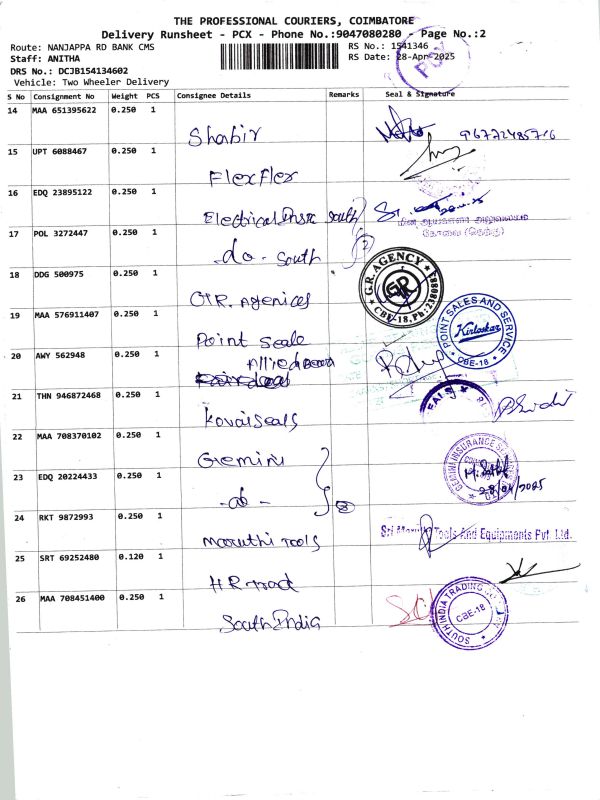 THE PROFESSIONAL COURIERS, COIMBATORE
Delivery Runsheet - PCX - Phone No.:9047080280 - Page No.:2
Route: NANJAPPA RD BANK CMS
RS No.: 1541346
Staff: ANITHA
RS Date: 28-Apr-2025
DRS No.: DCJB154134602
Vehicle: Two Wheeler Delivery
S No Consignment No Weight PCS Consignee Details Remarks Seal & Signature
14 MAA 651395622 0.250 1
Shabir
96772485716
15 UPT 6088467 0.250 1
FlexFlex
16 EDQ 23895122 0.250 1
Electrical Insr south
17 POL 3272447 0.250 1
மின் ஆய்வாளர் அலுவலகம்
கோவை (தெற்கு)
-do- south
2
18 DDG 500975 0.250 1
G.R. AGENCY
GR
CBE-18. Ph: 2380888
GR. Agenices
19 MAA 576911407 0.250 1
POINT SALES AND SERVICE
Kirloskar
CBE-18
Point Seale
20 AWY 562948 0.250 1
Allied
21 THN 946872468 0.250 1
SEALS
Kovai seals
22 MAA 708370102 0.250 1
Gemini
GEMINI INSURANCE
23 EDQ 20224433 0.250 1
28/04/2025
-do-
8
24 RKT 9872993 0.250 1
Sri Maruthi Tools And Equipments Pvt. Ltd.
Maruthi Tools
25 SRT 69252480 0.120 1
HR
26 MAA 708451400 0.250 1
SOUTH INDIA TRADING
CBE-18
South India